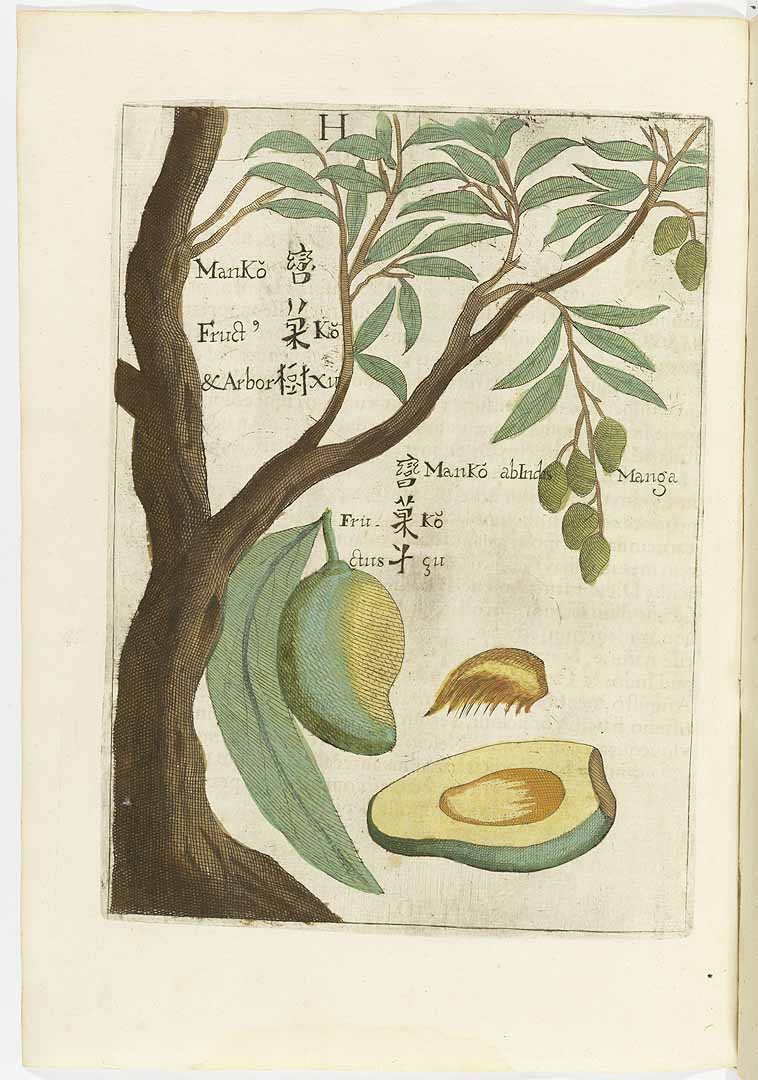 H
ManKŏ
Fructꝰ 菓 Kŏ
& Arbor 樹 xu
ManKŏ ab Indis Manga
Fru- 菓 Kŏ
ctus 子 çu